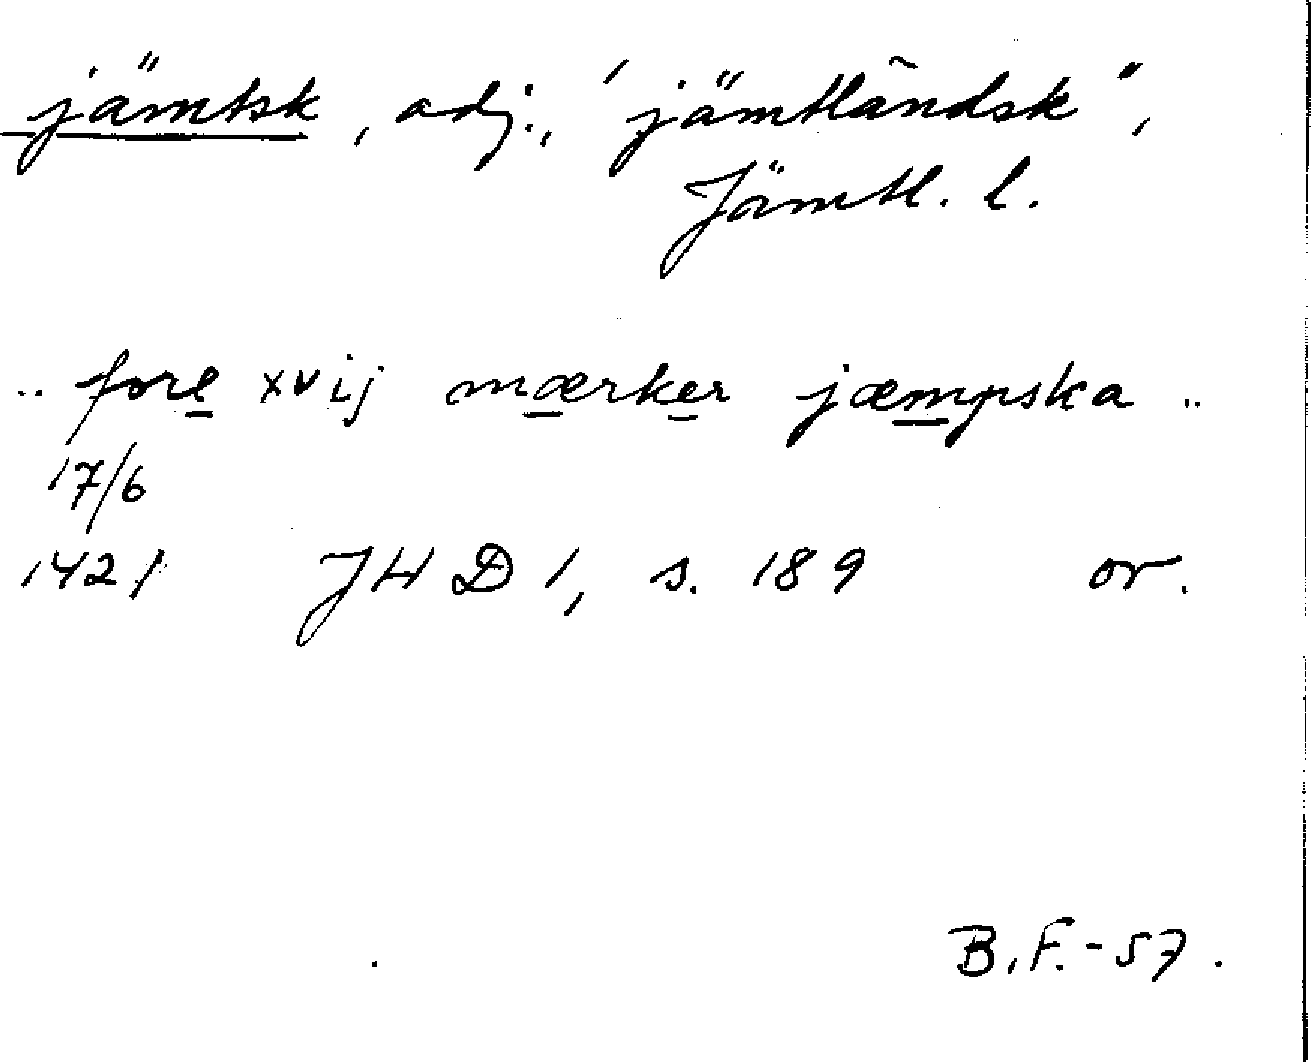 jämtsk, adj., "jämtländsk",
Jämtl. l.
.. fore xvij mærker jæmpska ..
17/6
1421 JHD 1, s. 189 or.
B.F.-57.